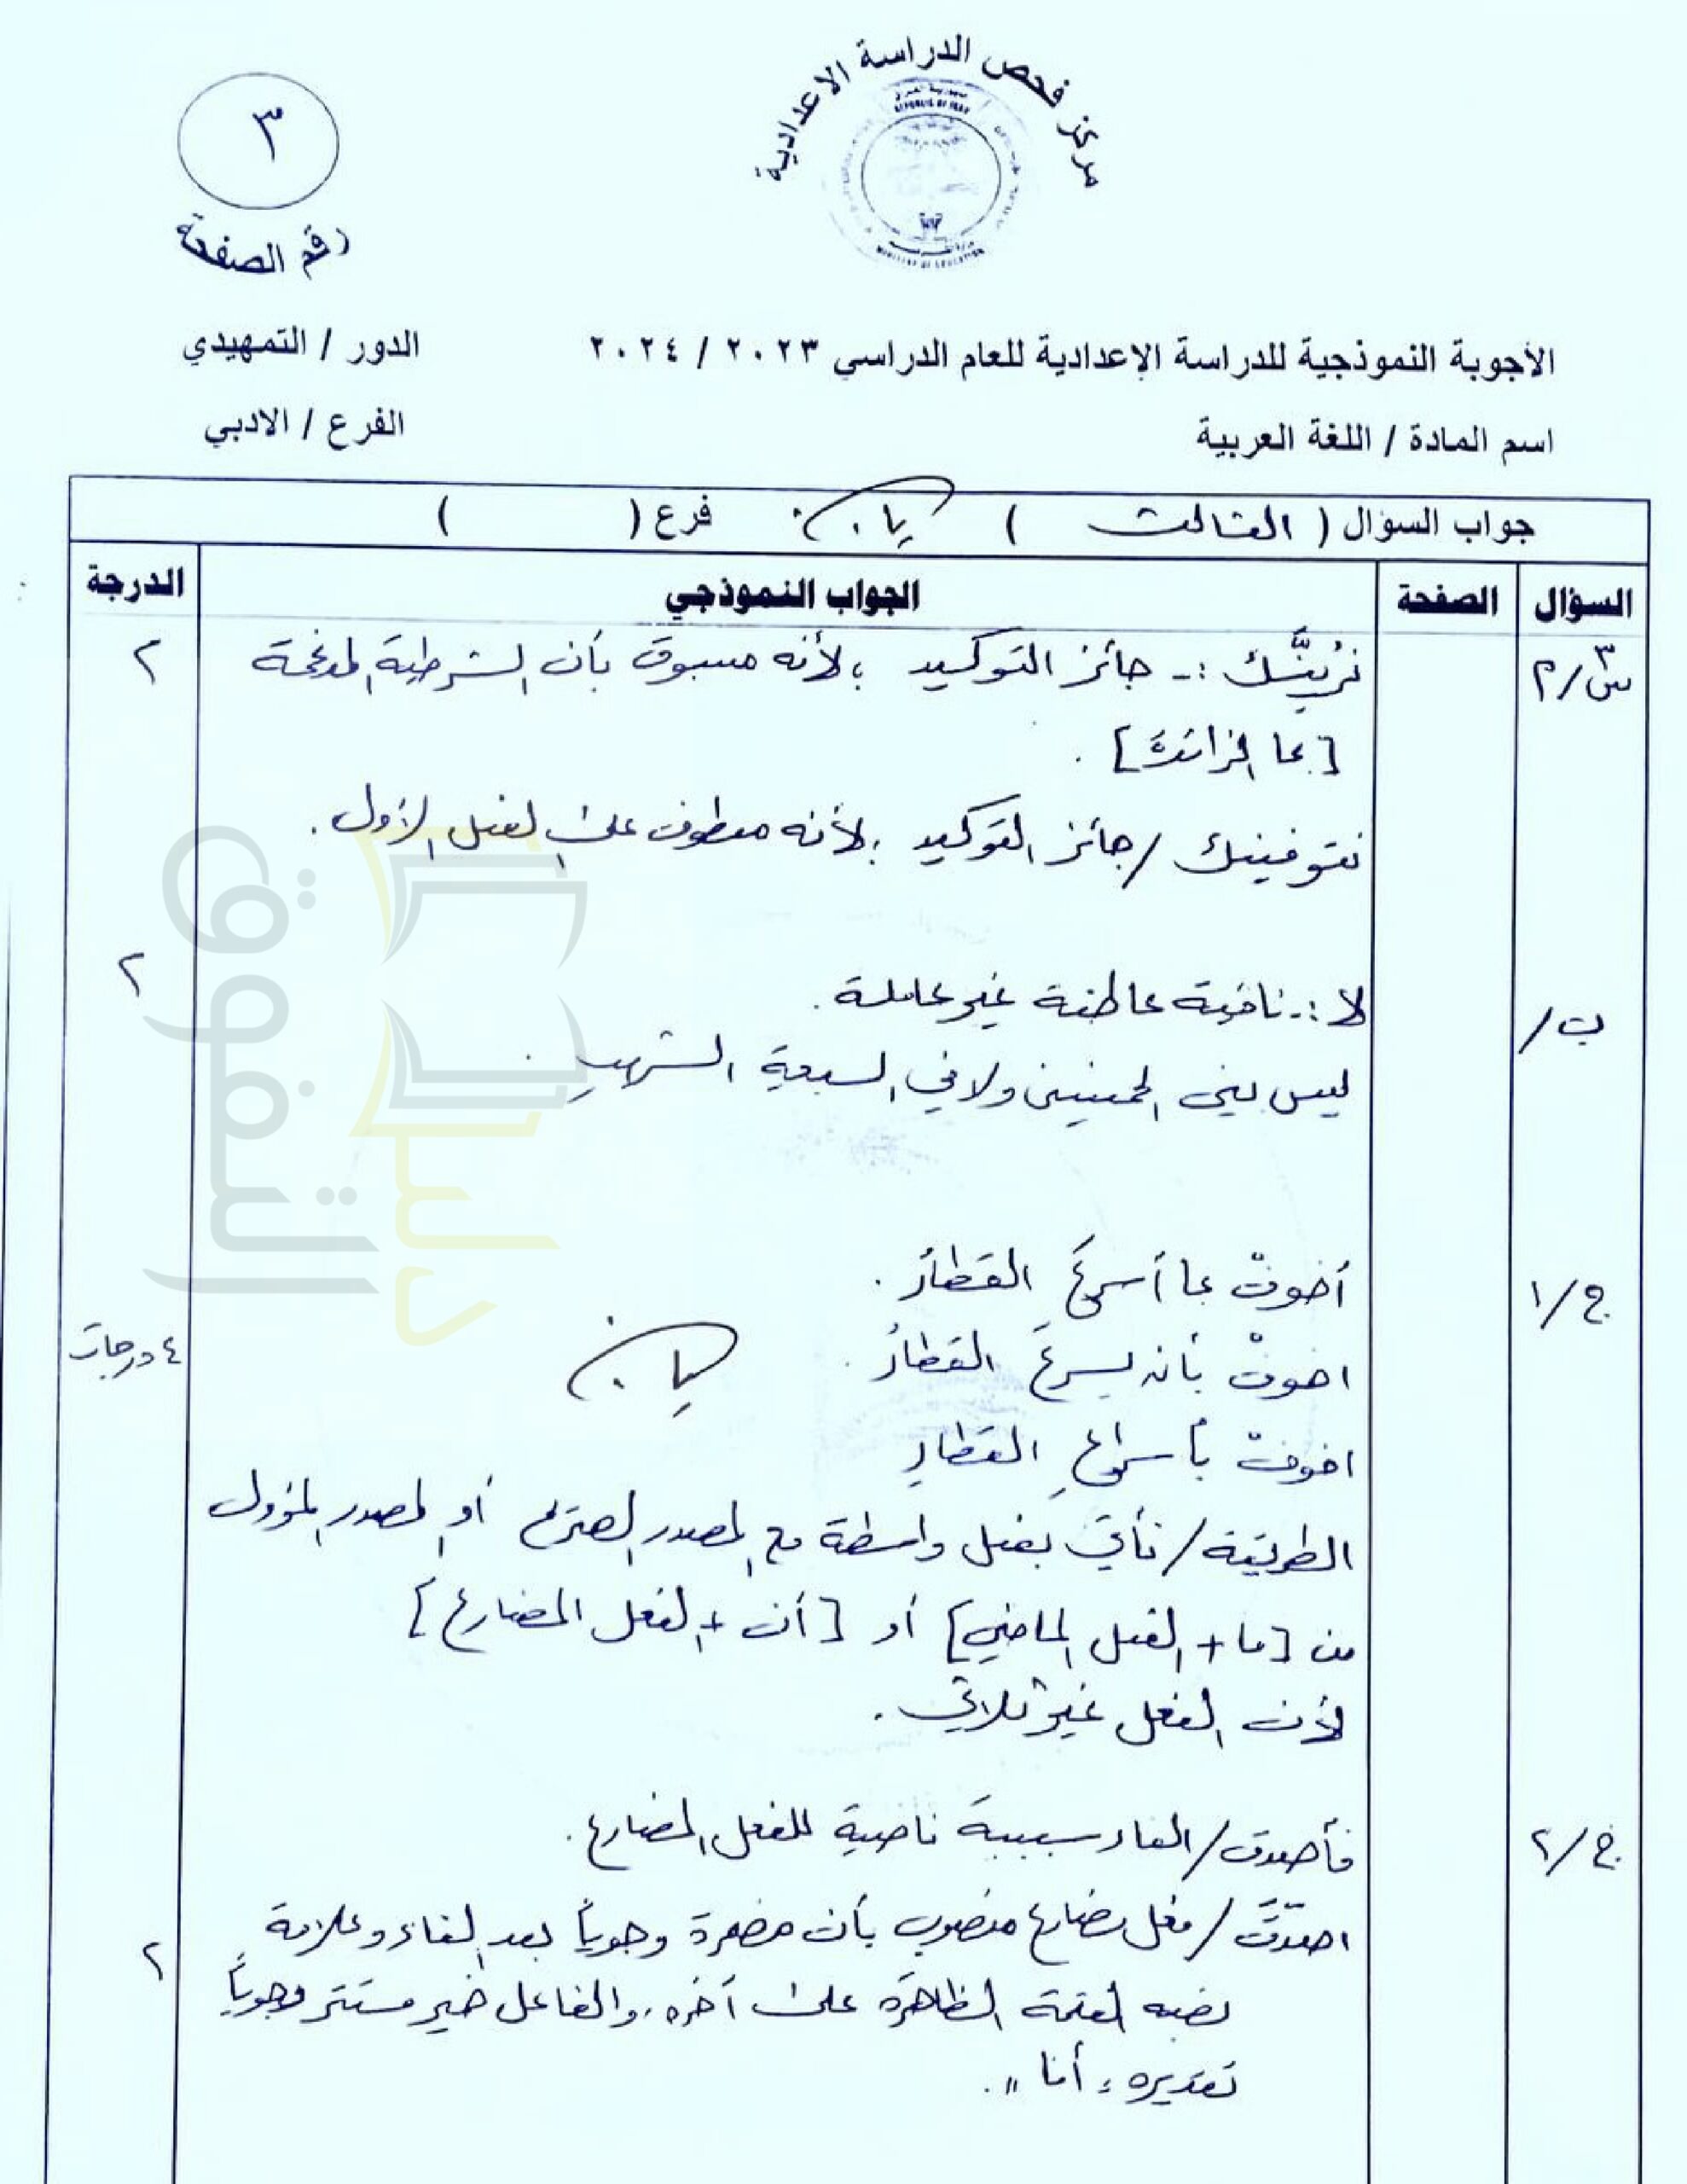 مركز فحص الدراسة الاعدادية
REPUBLIC OF IRAQ
MINISTRY OF EDUCATION
٣
رقم الصفحة
الأجوبة النموذجية للدراسة الإعدادية للعام الدراسي ٢٠٢٣ / ٢٠٢٤
الدور / التمهيدي
اسم المادة / اللغة العربية
الفرع / الادبي
جواب السؤال ( الثالث ) فرع ( )
السؤال الصفحة الجواب النموذجي الدرجة
س٣/٢ نرينَّك :- جائز التوكيد ؛ لأنه مسبوق بأن الشرطية المدغمة ٢
[بما الزائدة] .
نتوفينك / جائز التوكيد ؛ لأنه معطوف على الفعل الأول .
ب/ لا :- نافية عاطفة غير عاملة . ٢
ليس بني الخمينين ولا في السبعة الشهب .
ج/١ أخوفْ بما أسرعَ القطارُ .
اخوفْ بأن يسرعَ القطارُ .
٤ درجات
اخوفْ بأسراعِ القطارِ
الطريقة / نأتي بفعل واسطة مع المصدر الصريح أو المصدر المؤول
من [ما + الفعل الماضي] أو [أن + الفعل المضارع]
لأن الفعل غير ثلاثي .
ج/٢ فأصدق / الفاء سببية ناصبة للفعل المضارع .
اصدّقَ / فعل مضارع منصوب بأن مضمرة وجوباً بعد الفاء وعلامة ٢
نصبه الفتحة الظاهرة على آخره، والفاعل ضمير مستتر وجوباً
تقديره " أنا " .
دليل التفوق